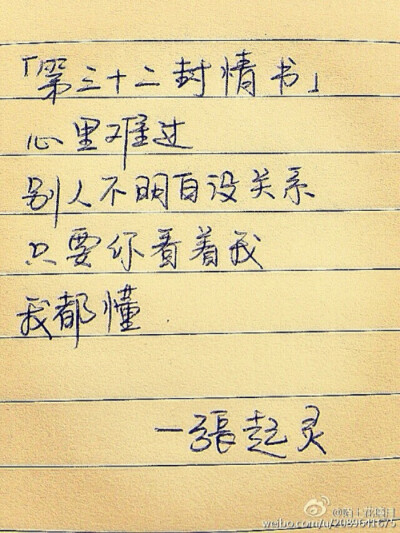 「第三十二封情书」
心里难过
别人不明白没关系
只要你看着我
我都懂
一張起灵